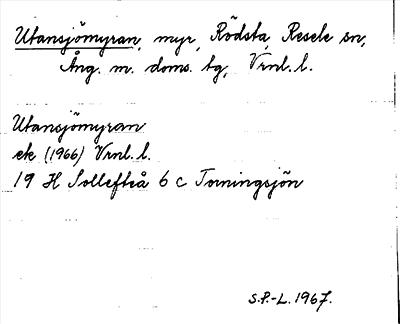 Utansjömyran, myr, Rödsta, Resele sn,
Ång. m. doms. tg, Vrnl. l.
Utansjömyran
ek (1966) Vrnl. l.
19 H Sollefteå 6 c Torningsjön
S.P.-L. 1967.